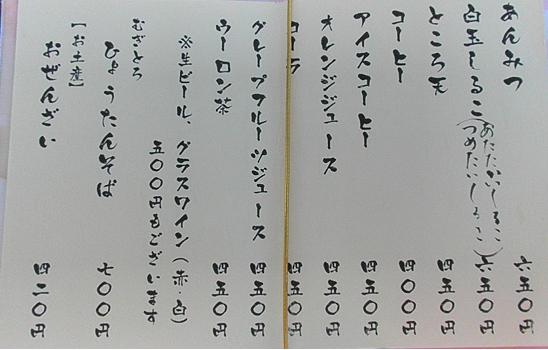 あんみつ 六五〇円
白玉しるこ(あたたかいしるこ つめたいしるこ) 六五〇円
ところ天 四五〇円
コーヒー 四〇〇円
アイスコーヒー 四五〇円
オレンジジュース 四五〇円
コーラ 四五〇円
グレープフルーツジュース 四五〇円
ウーロン茶 四五〇円
※生ビール、グラスワイン(赤・白)
五〇〇円もございます
むぎとろ
ひょうたんそば 七〇〇円
【お土産】
おぜんざい 四二〇円